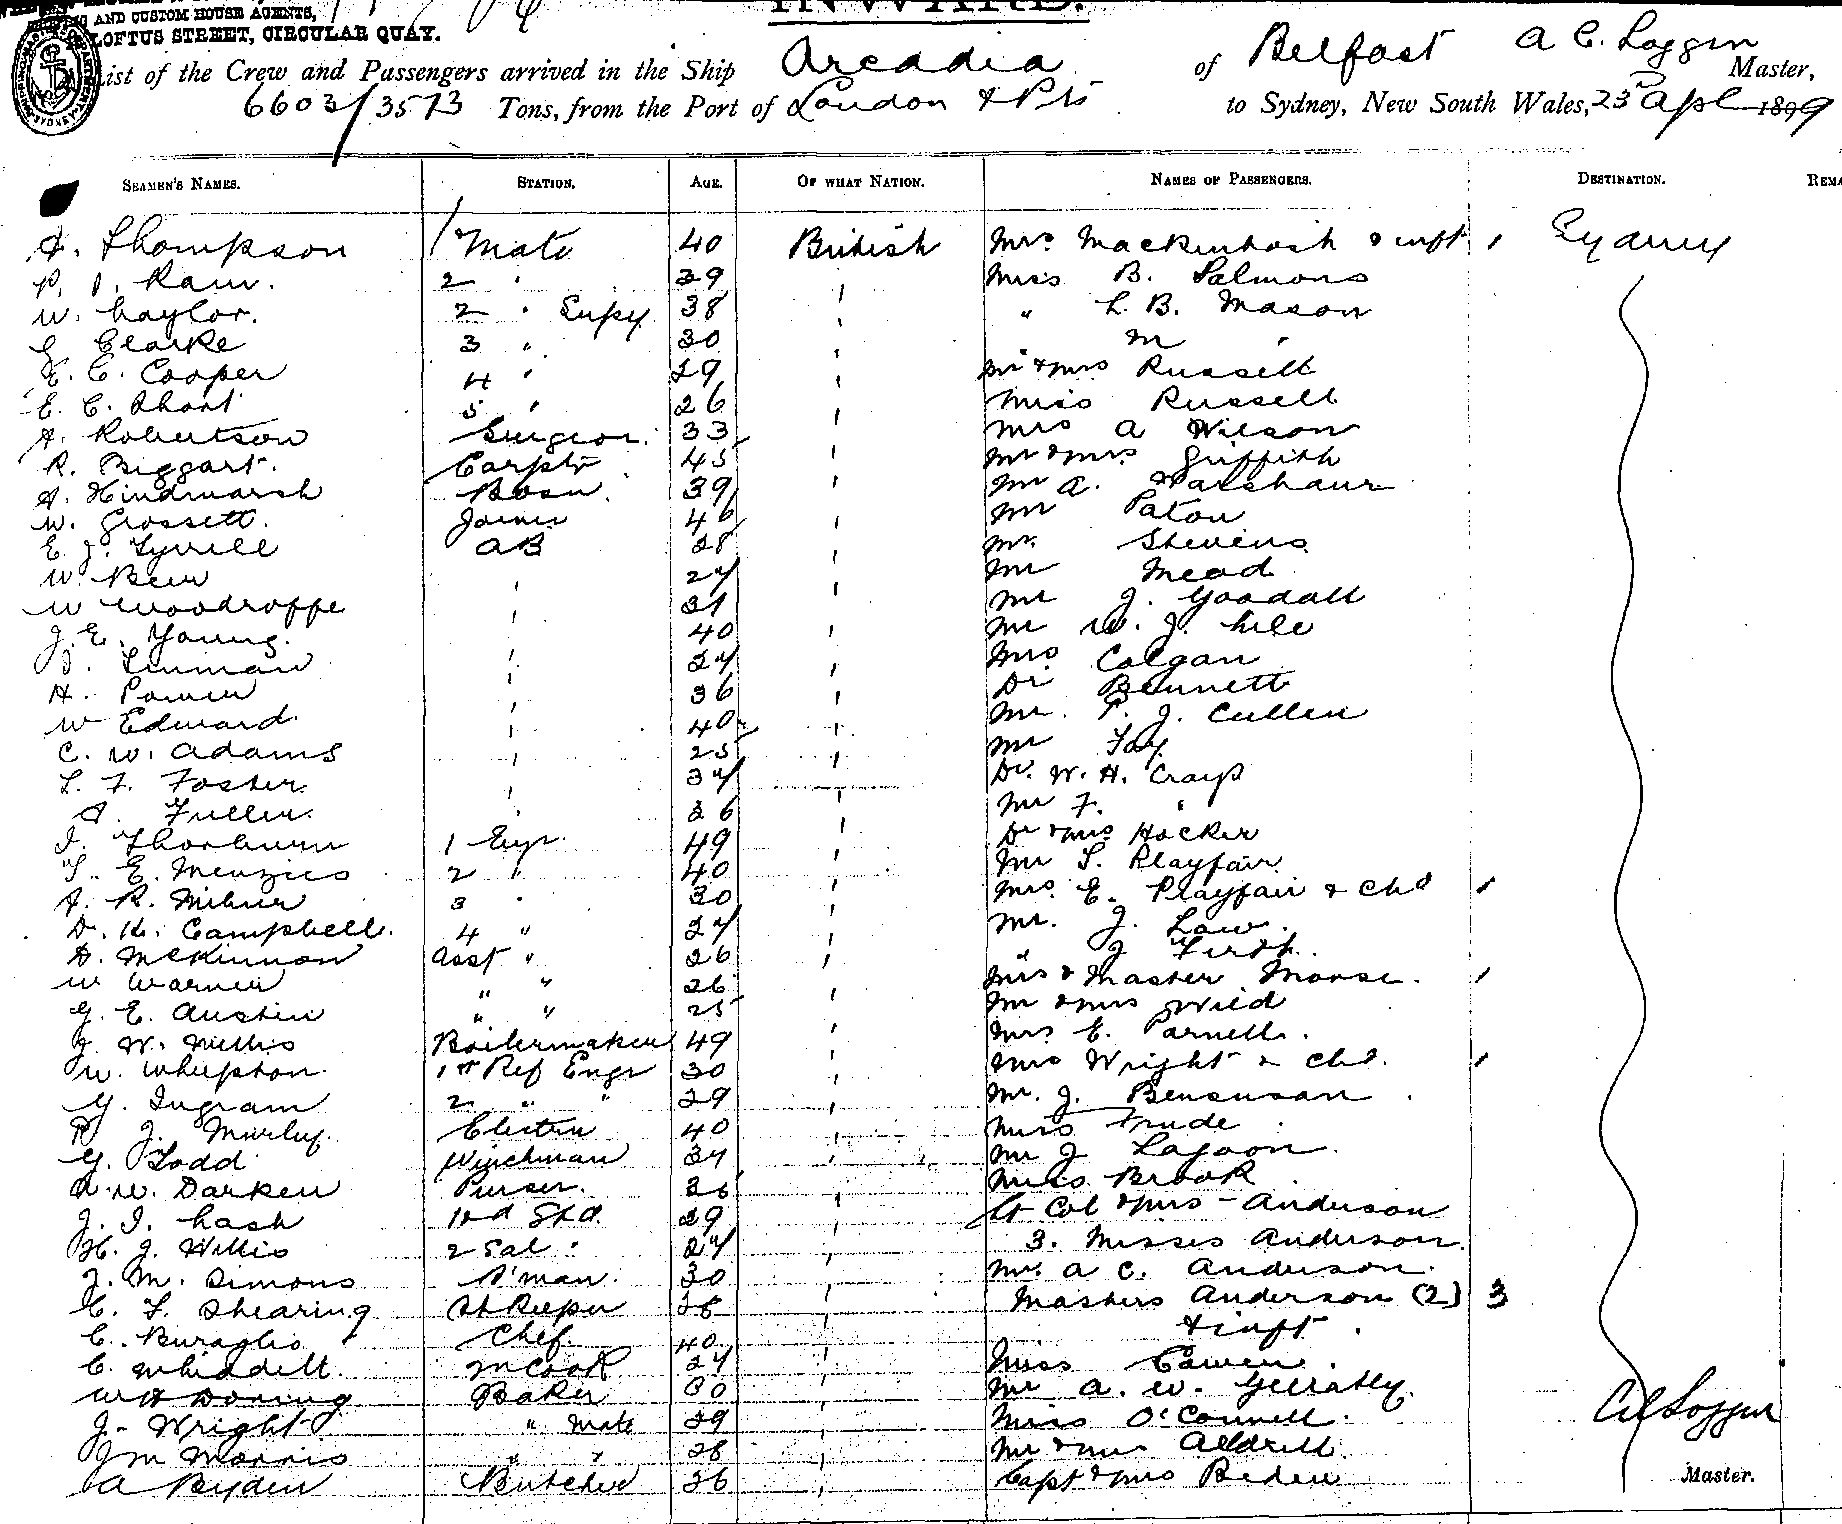 INWARD.
AND CUSTOM HOUSE AGENTS,
LOFTUS STREET, CIRCULAR QUAY.
List of the Crew and Passengers arrived in the Ship Arcadia of Belfast A C. Loggin Master,
6603/3573 Tons, from the Port of London & Pts to Sydney, New South Wales, 23rd Apl 1899
SEAMEN'S NAMES. STATION. AGE. OF WHAT NATION. NAMES OF PASSENGERS. DESTINATION.
Thompson 1st Mate 40 British Mrs Mackintosh & inft 1 Sydney
2 " 39 Miss B. Salmons
W. Naylor. 2 " Supy 38 " L. B. Mason
Clarke 3 " 30 " M "
E. C. Cooper 4 " 29 Mr & Mrs Russell
E. C. Short 5 " 26 Miss Russell
A. Robertson Surgeon 33 Mrs A Wilson
R. Biggart. Carptr 45 Mr & Mrs Griffith
A. Hindmarsh Bosn. 39 Mr A.
W. Grossett. Joiner 46 Mr Paton
E. J. Tyrrell AB 28 Mr. Stevens
W. 24 Mr Mead
W Woodroffe 31 Mr J. Goodall
J. E. Young. 40 Mr W. J.
24 Mrs Colgan
H. 36 Dr Bennett
W Edward. 40 Mr. P. J. Cullen
C. W. Adams 25 Mr Fay
L. F. Foster. 34 Dr. W. H. Crago
A. Fuller. 26 Mr F. "
Thorburn 1 Engr. 49 Dr & Mrs Hocker
E. Menzies 2 " 40 Mr S. Playfair
A. R. Milner 3 " 30 Mrs. E. Playfair & Chd 1
D. H. Campbell. 4 " 24 Mr. J. Law.
D. McKinnon Asst " 26 " J Firth.
W Warner " " 26 Mrs & Master Morse. 1
G. E. Austin " " 25 Mr & Mrs Wild
J. W. Boilermaker 49 Mrs E. Parnell.
W. Whupton. 1st Ref Engr 30 Mrs Wright & Chd. 1
G. Ingram 2 " " 29 Mr. J. Benensan
J. Electrn 40 Miss Trude
G. Todd Winchman 34 Mr J Lagoon.
W. Darken Purser. Miss Brook
29 Lt Col & Mrs Anderson
H. J. Willis 2 Sal " 24 3. Misses Anderson.
J. M. Simons 30 Mr. A C. Anderson.
C. F. Shearing Stkeeper 28 Masters Anderson (2) 3
C. Buraglio Chef. 40 & inft.
C. Whiddett. 24 Miss
W H Doring Baker 30 Mr A. W.
J. Wright " Mate 29 Miss O'Connell.
J M Morris " " 28 Mr & Mrs Aldritt.
A Ryden Butcher 26 Capt & Mrs Beden
A C Loggin
Master.